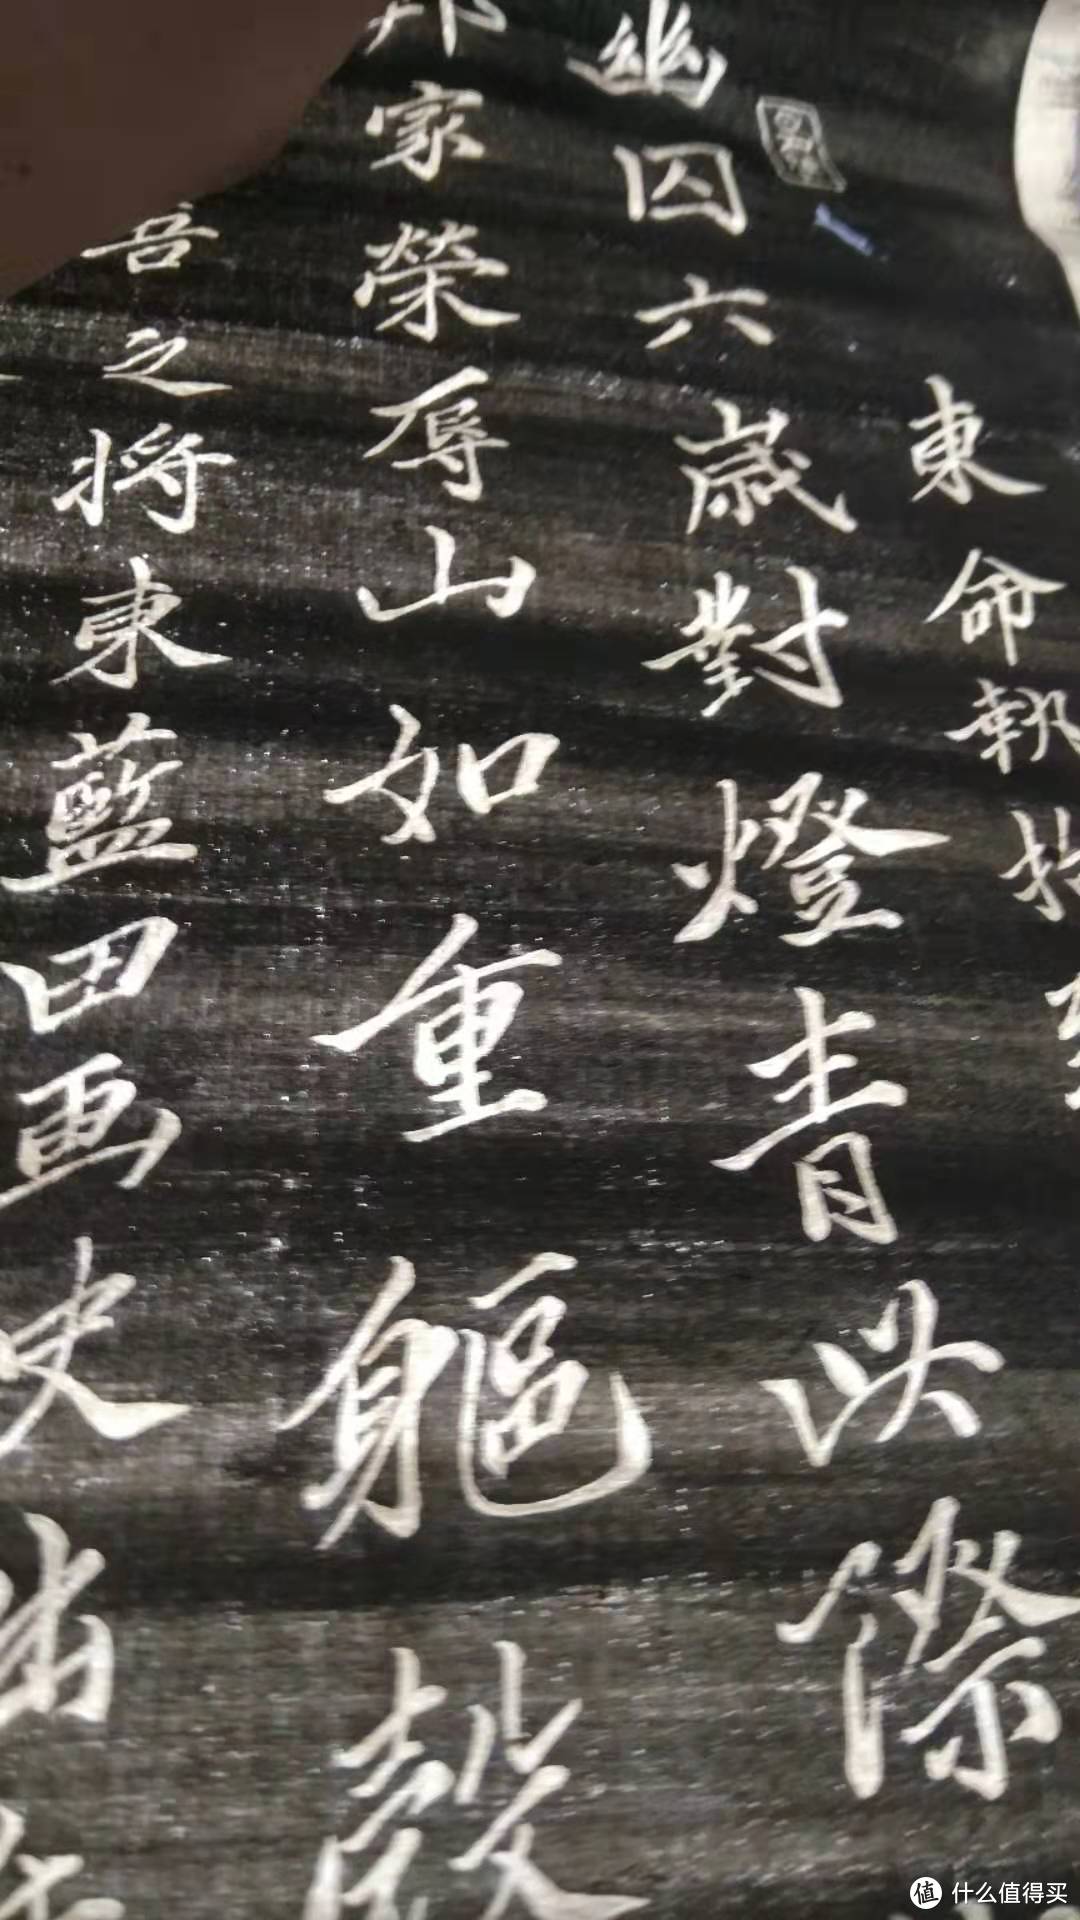 東命執
幽囚六歲對燈青以際
家榮辱山如重軀殼
吾之將東藍田画
值 什么值得买